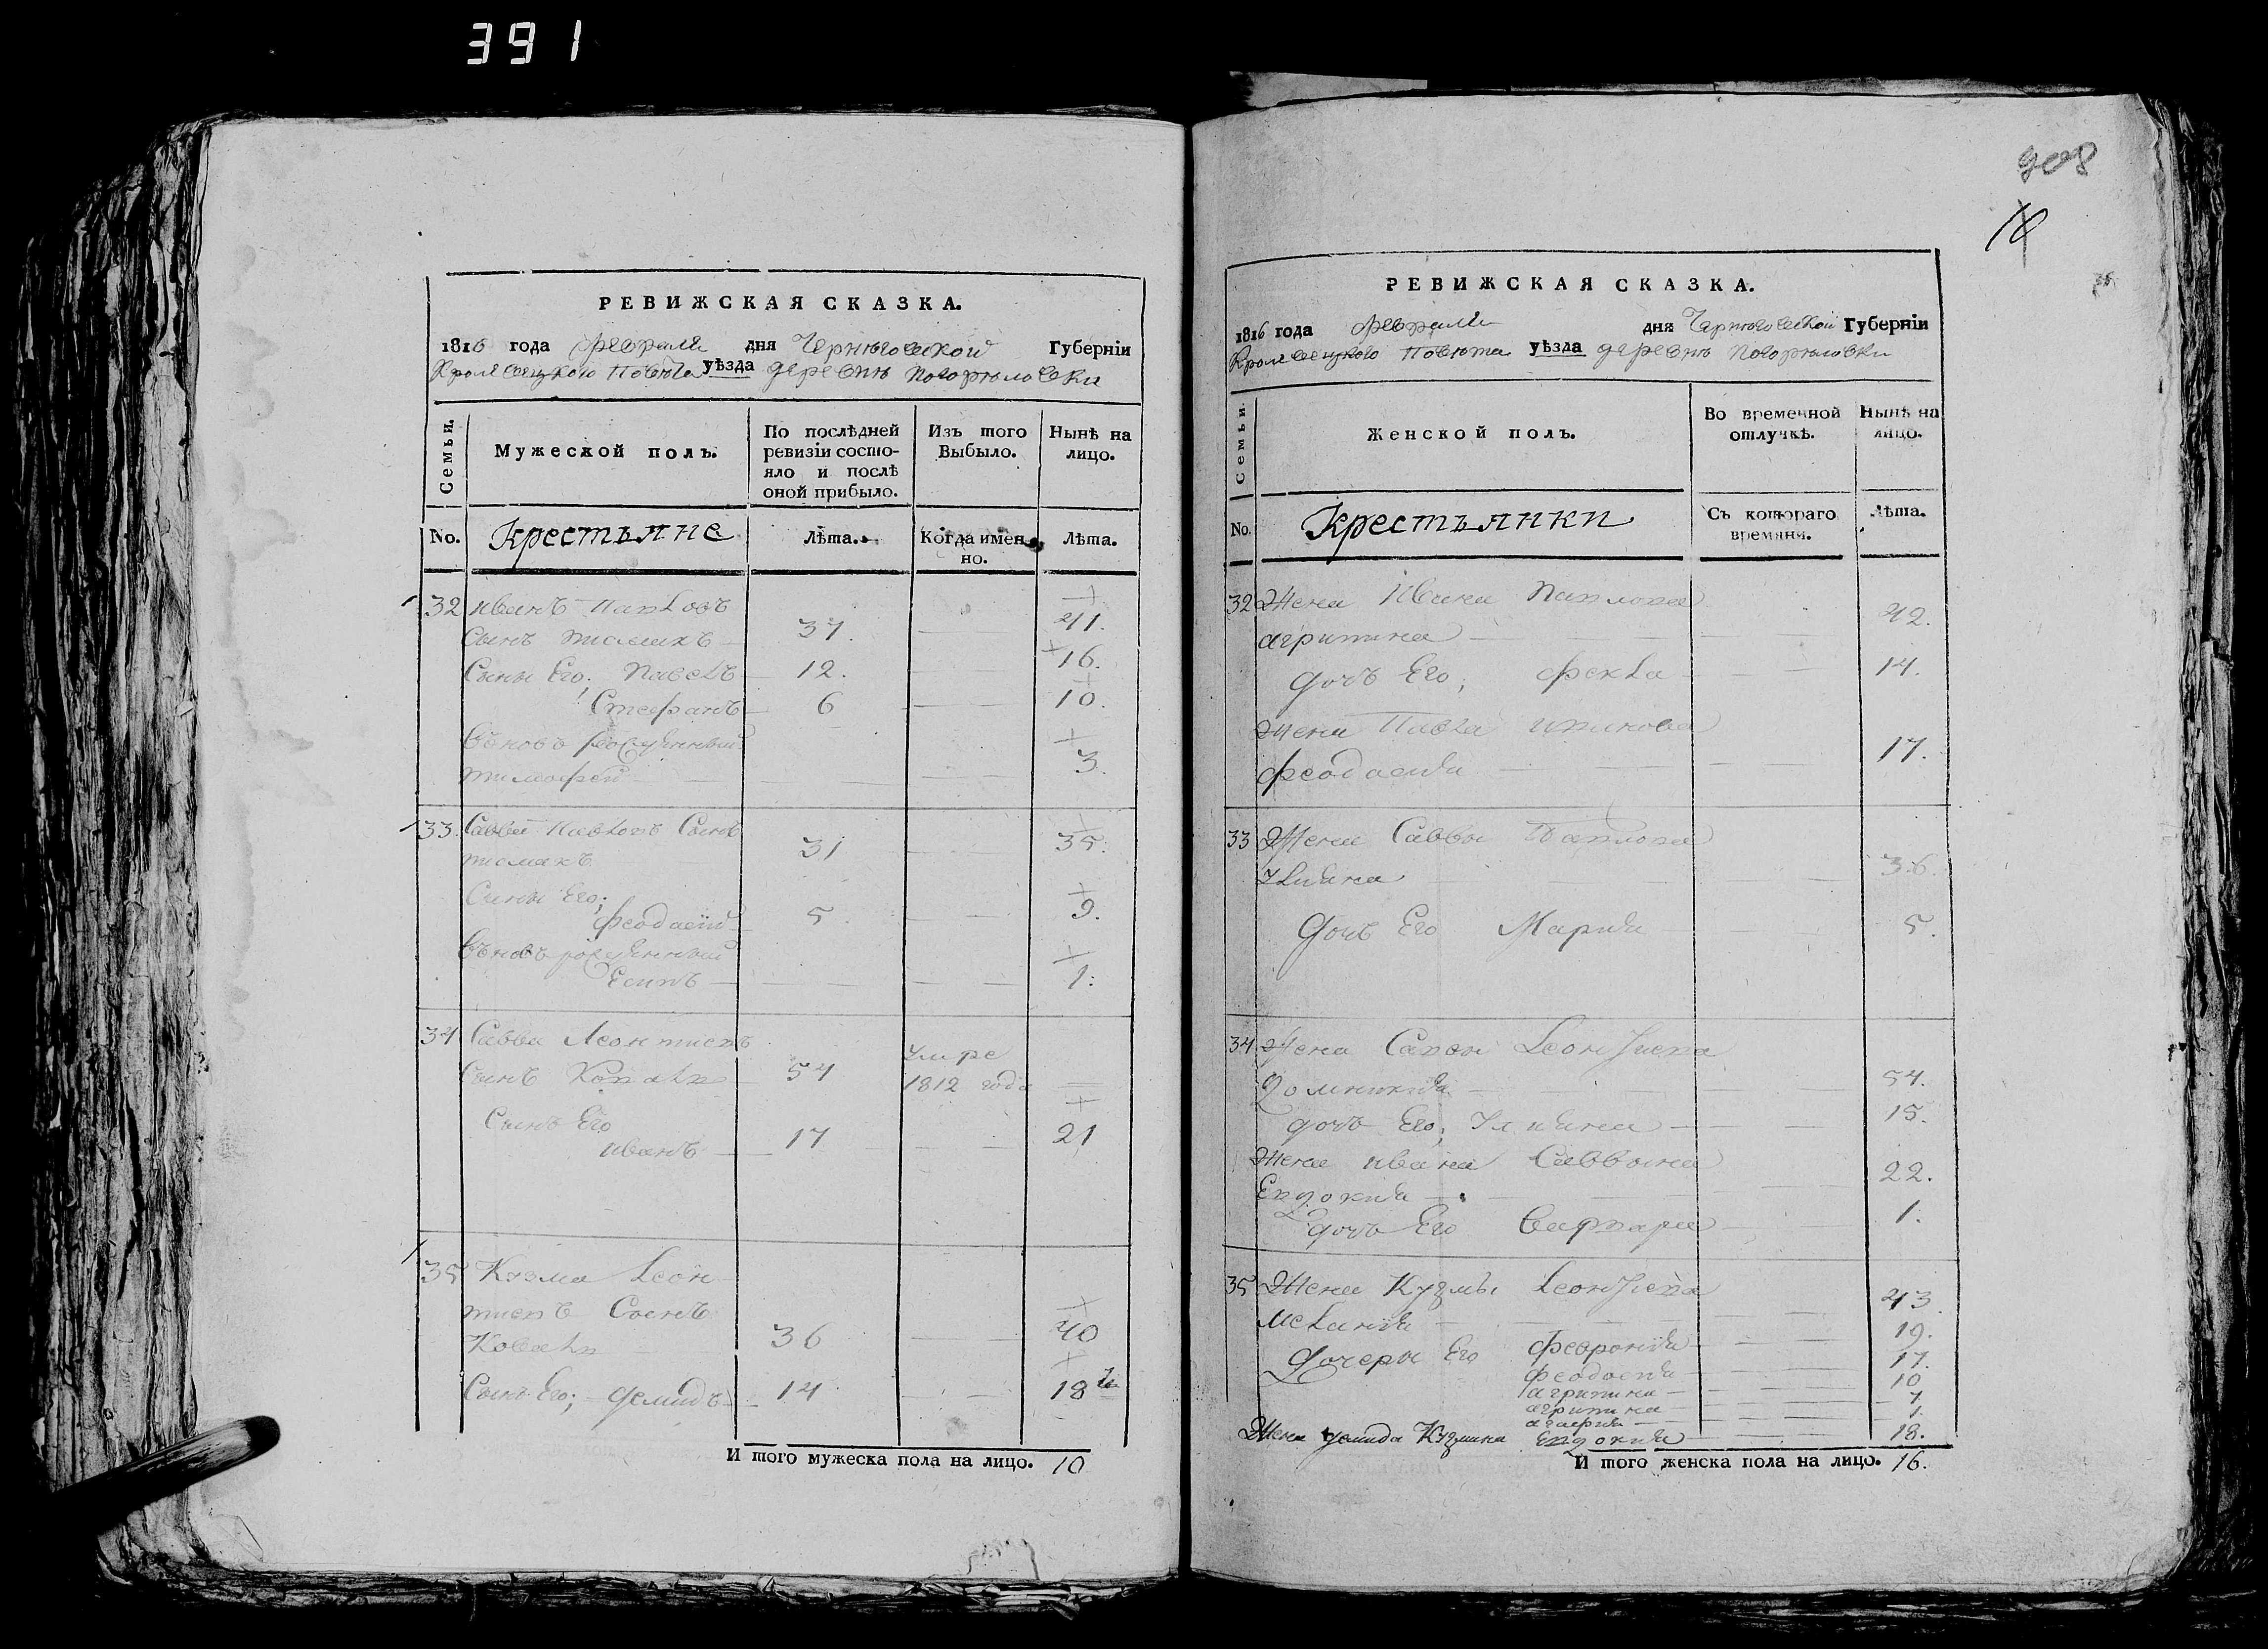 391
908
РЕВИЖСКАЯ СКАЗКА.
1816 года февраля дня Черниговской Губерніи
Кролевецкого Повета уѣзда деревнѣ Погорѣловки
Семьи.
Мужеской полъ.
По послѣдней ревизіи состояло и послѣ оной прибыло.
Изъ того Выбыло.
Нынѣ на лицо.
No. Крестьяне Лѣта. Когда именно. Лѣта.
32 иванъ Павловъ
сынъ 37. 41.
Сыны Его; Павелъ 12. 16.
Стефанъ 6 10.
вновь рожденный
тимофей 3.
33. Савва Павловъ Сынъ
31 35.
Сыны Его;
феодосий 5 9.
вновь рожденный
Есипъ 1.
34 Савва Леонтиевъ умре
Сынъ Коваль 54 1812 года
Сынъ Его
иванъ 17 21
35 Кузма Леон
тиевъ Сынъ
Коваль 36 40
Сынъ Его; демидъ 14 18
И того мужеска пола на лицо. 10
РЕВИЖСКАЯ СКАЗКА.
1816 года февраля дня Черниговской Губерніи
Кролевецкого Повета уѣзда деревнѣ Погорѣловки
Семьи.
Женской полъ.
Во временной отлучкѣ.
Нынѣ на лицо.
No. Крестьянки Съ котораго времяни. Лѣта.
32 Жена Ивана Павлова
агрипина 42.
дочь Его; фекла 14.
жена Павла иванова
феодосия 17.
33 Жена Саввы Павлова
Улияна 36.
дочь Его Мария 5.
34 Жена Саввы Леонтиева
Домникия 54.
дочь Его; Улияна 15.
Жена ивана Саввына
Евдокия 22.
дочь Его Варвара 1.
35 Жена Кузмы Леонтиева
Мелания 43.
Дочеры Его феврония 19.
феодосия 17.
агрипина 10
агрипина 7
агафия 1.
Жена демида Кузмина Евдокия 18.
И того женска пола на лицо. 16.